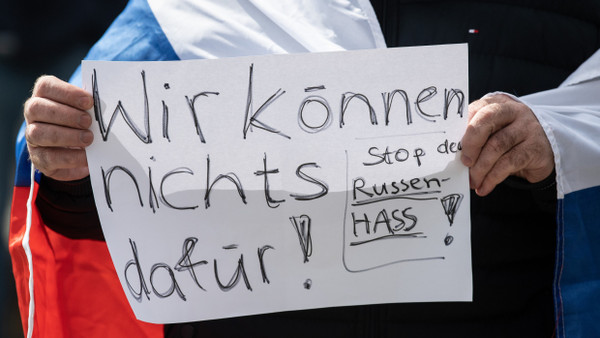 Wir können
nichts
dafür!
Stop de
Russen-
HASS!